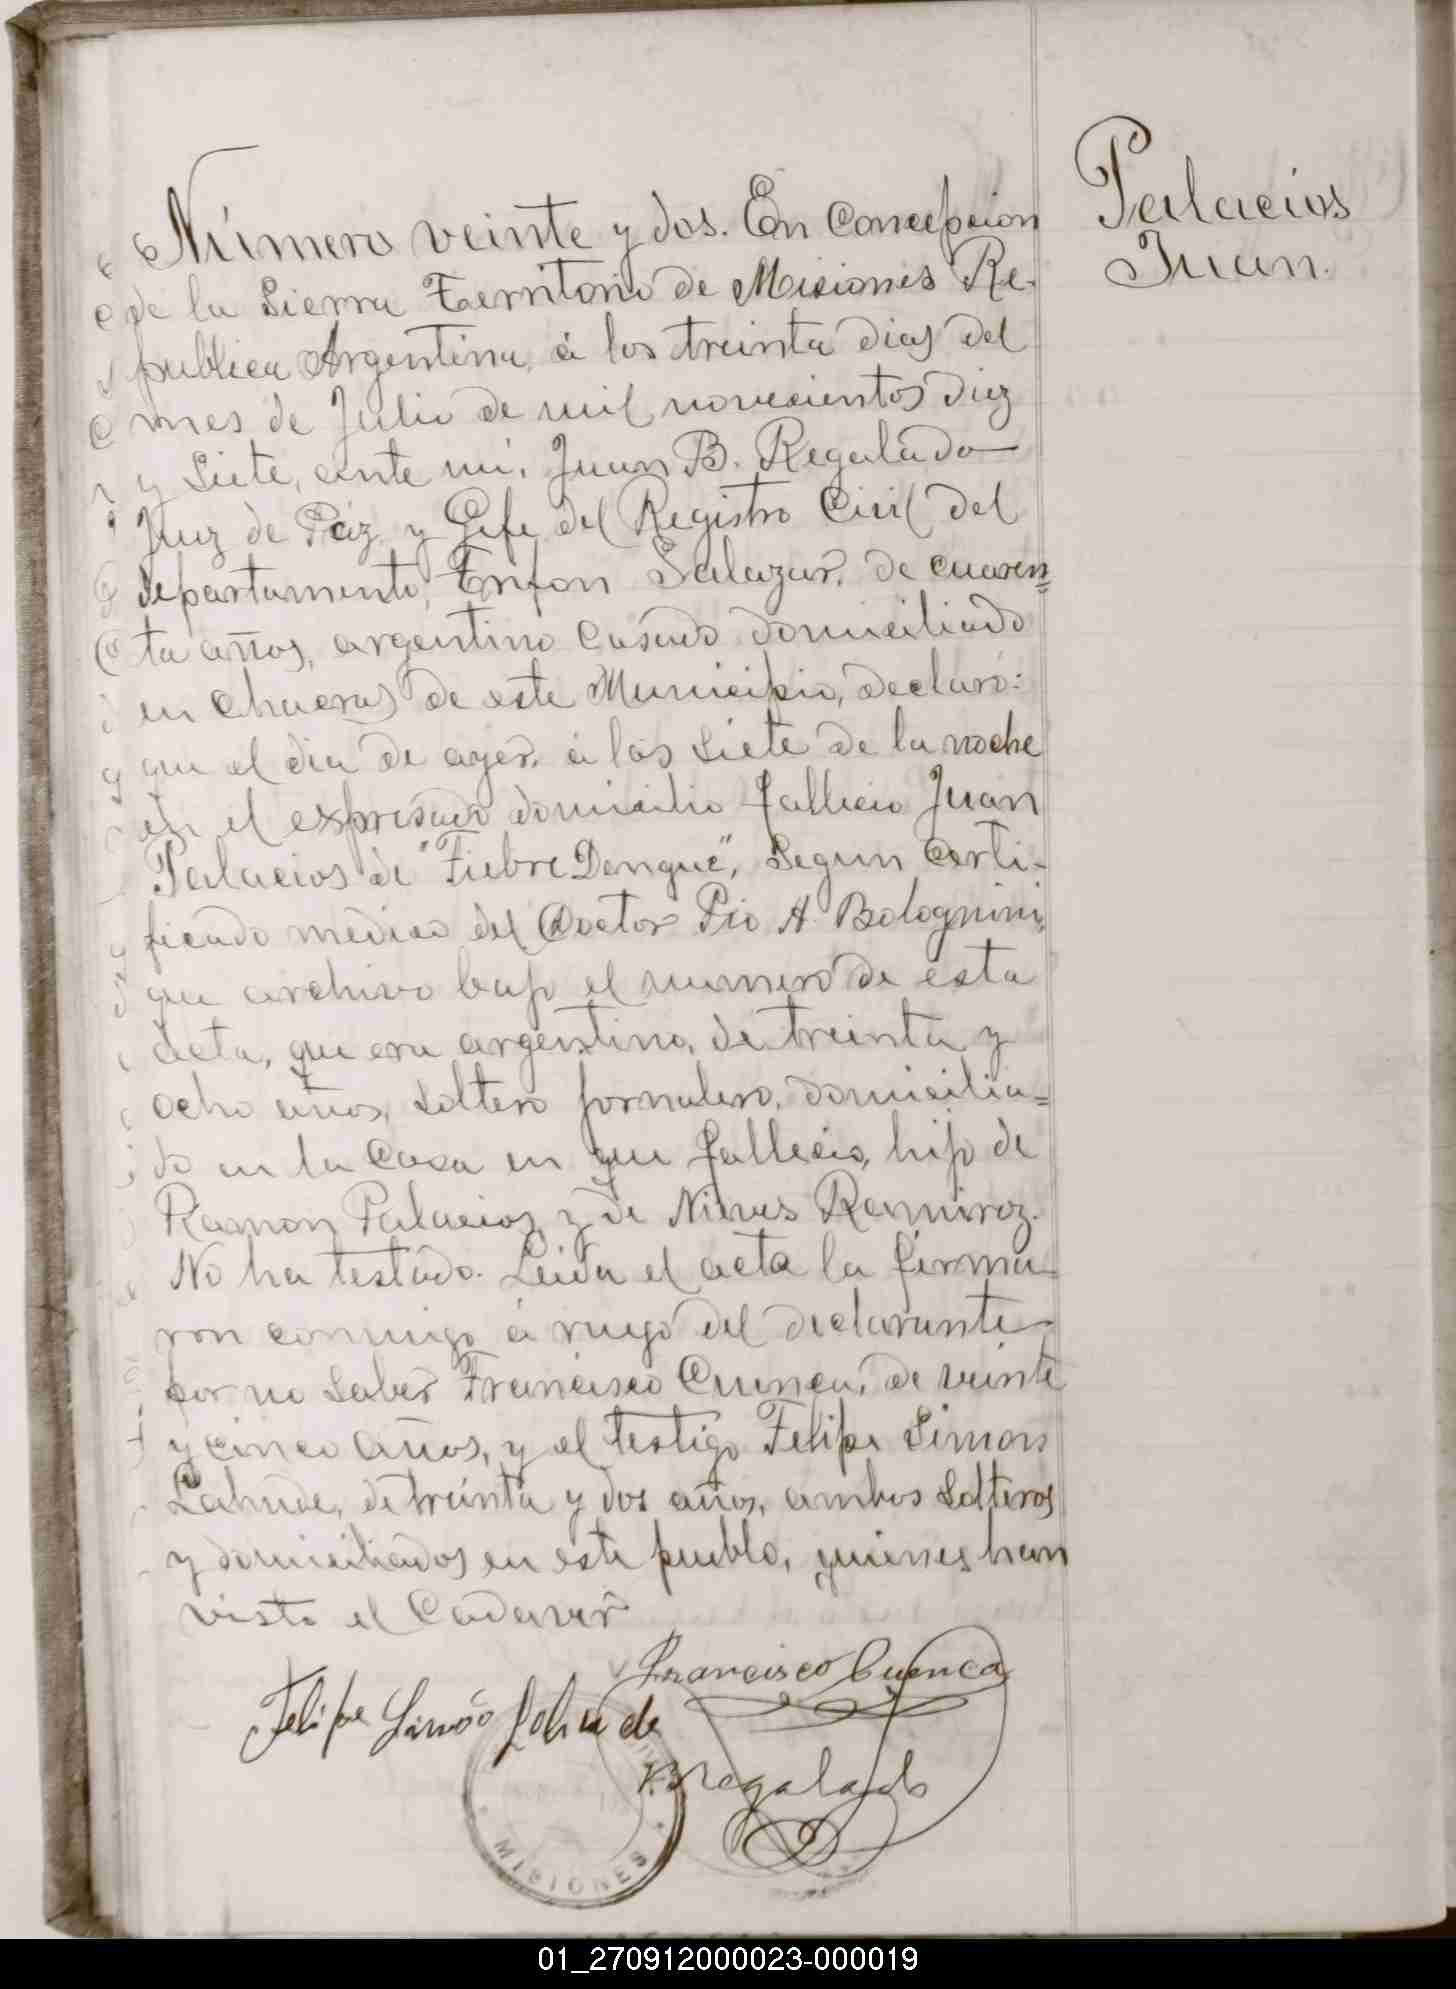 Número veinte y dos. En Concepcion
de la Sierra Territorio de Misiones Re-
publica Argentina, á los treinta dias del
mes de Julio de mil novecientos diez
y siete, ante mi, Juan B. Regalado
Juez de Paz y Gefe del Registro Civil del
departamento, Trifon Salazar, de cuaren=
ta años, argentino casado domiciliado
en chacras de este Municipio, declaró:
que el dia de ayer, á las siete de la noche
en el expresado domicilio fallecio Juan
Palacios de "Fiebre Dengue", segun certi-
ficado medico del Doctor Pio A. Bolognini,
que archivo bajo el numero de esta
acta, que era argentino, de treinta y
ocho años, soltero jornalero, domicilia=
do en la casa en que fallecio, hijo de
Ramon Palacios y de Nieves Ramirez.
No ha testado. Leida el acta la firma-
ron conmigo á ruego del declarante
por no saber Francisco Cuenca, de veinte
y cinco años, y el testigo Felipe Simon
Lahude, de treinta y dos años, ambos solteros
y domiciliados en este pueblo, quienes han
visto el cadaver
Palacios
Juan.
Francisco Cuenca
Felipe Simão Lahude
Regalado
MISIONES
01_270912000023-000019